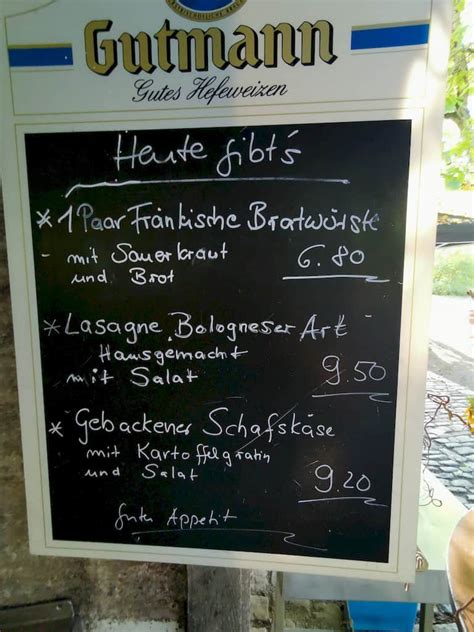 Gutmann
Gutes Hefeweizen
Heute gibt's
* 1 Paar Fränkische Bratwürste
- mit Sauerkraut
und Brot
6.80
* Lasagne "Bologneser Art"
Hausgemacht
mit Salat
9.50
* Gebackener Schafskäse
mit Kartoffelgratin
und Salat
9.20
Guten Appetit